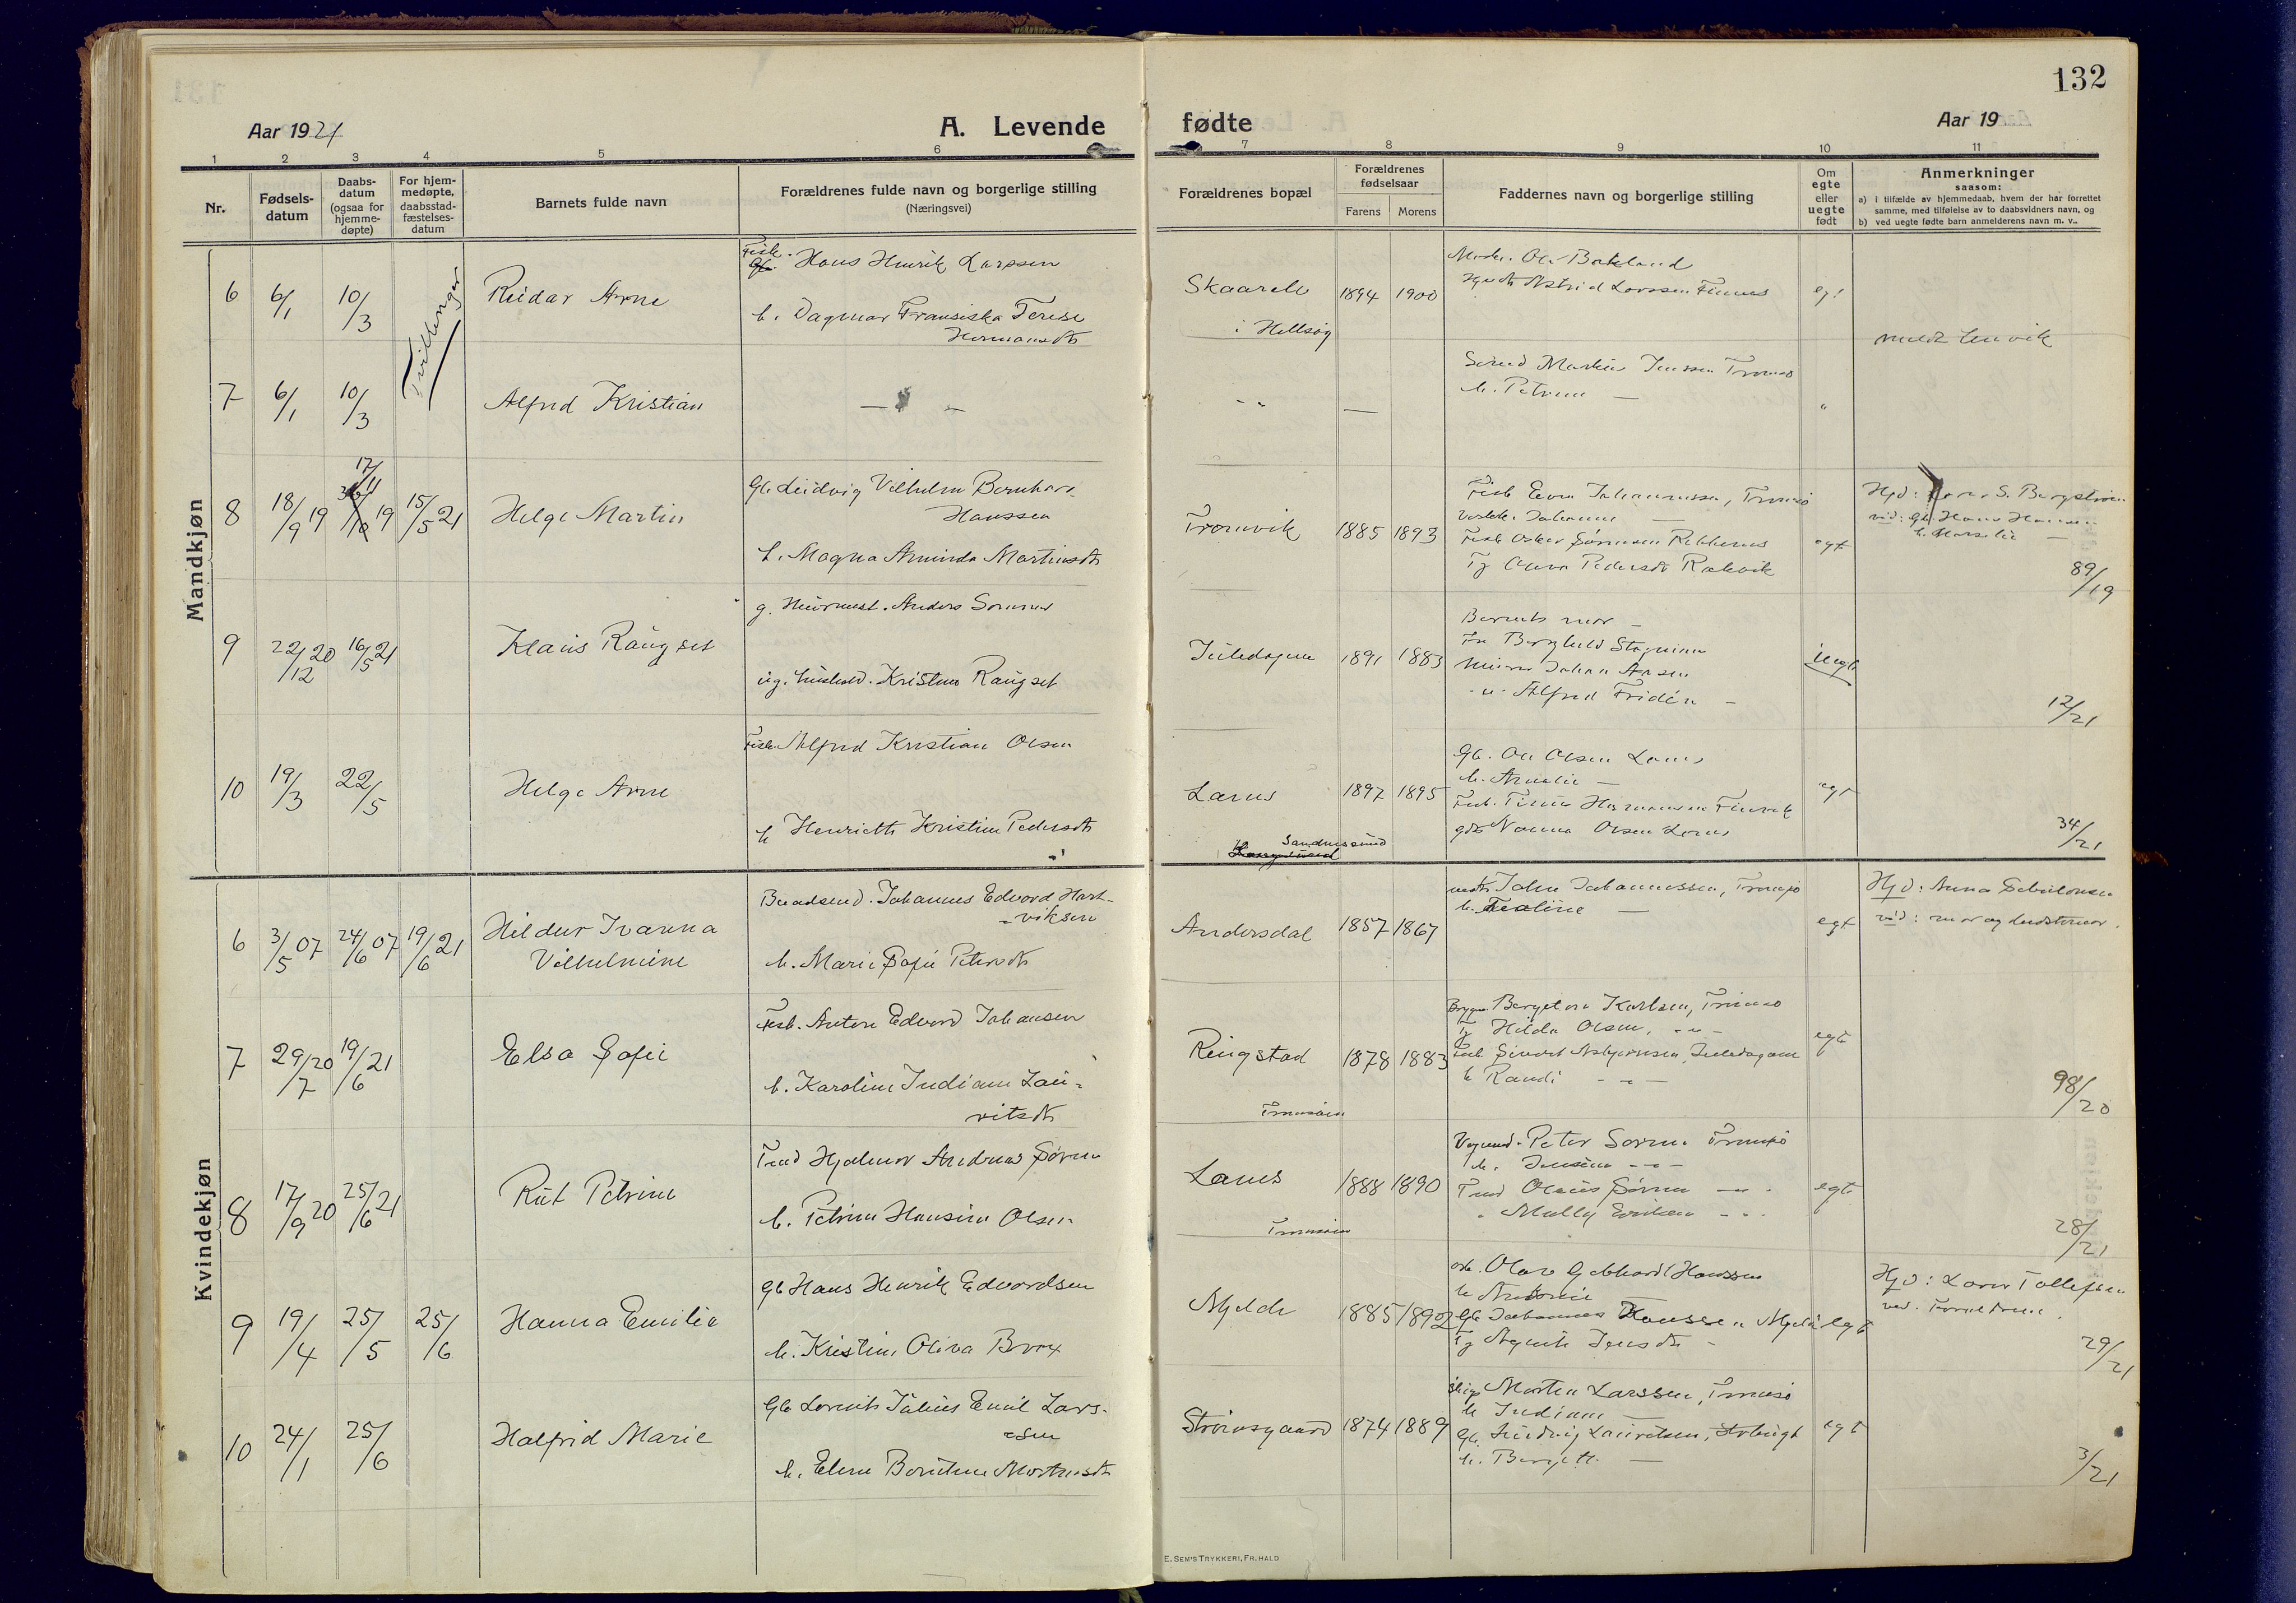 132
Aar 1921
A. Levende fødte
Aar 19
1 2 3 4 5 6 7 8 9 10 11
Nr.
Fødsels-
datum
Daabs-
datum
(ogsaa for
hjemme-
døpte)
For hjem-
medøpte,
daabsstad-
fæstelses-
datum
Barnets fulde navn
Forældrenes fulde navn og borgerlige stilling
(Næringsvei)
Forældrenes bopæl
Forældrenes
fødselsaar
Farens Morens
Faddernes navn og borgerlige stilling
Om
egte
eller
uegte
født
Anmerkninger
saasom:
a) i tilfælde av hjemmedaab, hvem der har forrettet
samme, med tilføielse av to daabsvidners navn, og
b) ved uegte fødte barn anmelderens navn m. v..
Mandkjøn
6 6/1 10/3 Tvillinger
Reidar Arne
Fisk. Hans Henrik Larssen
h. Dagmar Fransiska Terese
Hermansdt
Skaarell
i Hellsøg
1894 1900
Ole Bakland
Astrid Larssen Finnes
egt
meldt Lenvik
7 6/1 10/3
Alfred Kristian
Martin Jenssen Tromsø
h. Petrine —
8 18/9 19 17/11 19 15/5 21
Helge Martin
Gb. Ludvig Vilhelm Bernhard
Hanssen
h. Magna Arminda Martinsdt
Tromvik
1885 1893
Fisk Even Johannessen, Tromsø
Johanna —
Fisk Oskar Sørensen Rekkenes
Tj Olava Pedersdt Rakvik
egt
Hjd: S. Bergstrøm
vid: Gb. Hans Hansen
h. Marselie —
89/19
9 22/12 20 16/5 21
Klaus Raugset
g. Anders Sommer
ug. hushold. Kristine Raugset
Juledagene
1891 1883
Barnets mor —
Johan
-"- Alfred Fridén —
uegte
12/21
10 19/3 22/5
Helge Arne
Fisk. Alfred Kristian Olsen
h Henriette Kristine Pedersdt
Larnes
1897 1895
Gb. Ole Olsen Larnes
h. Amalie —
gdt Nanna Olsen Larnes
egt
34/21
Kvindekjøn
Sandnessund
6 3/5 07 24/6 07 19/6 21
Hildur Ivarna
Vilhelmine
Johannes Edvard Hart-
viksen
h. Marie Sofie Petersdt
Andersdal
1857 1867
John Johannessen, Tromsø
h. —
egt
Hjd: Anna
vid: mor og
7 29/7 20 19/6 21
Elsa Sofie
Fisk. Anton Edvard Johansen
h. Karoline Indiane Lau-
ritsdt
Ringstad
1878 1883
Bergeton Karlsen, Tromsø
Tj Hilda Olsen, -"-
Fisk Sivert Asbjørnsen, Juledagene
h Randi -"-
egt
98/20
Tromsøen
8 17/9 20 25/6 21
Rut Petrine
Hjalmar Andreas Sørum
h. Petrine Hansine Olsen
Larnes
1888 1890
Peter Sørum Tromsø
h. Jensine -"-
Olaus Sørum -"-
Molly -"-
egt
28/21
Tromsøen
9 19/4 25/5 25/6
Hanna Emilie
Gb Hans Henrik Edvardsen
h. Kristine Oliva Brox
Mjelde
1885 1892
Olav Gebhard Hanssen
h
Gb Johannes Hanssen Mjelde
Tj Agnete Jensdt —
egt
Hjd: Lars Tollefsen
vid. Forældrene.
29/21
10 24/1 25/6
Halfrid Marie
Gb Lorents Julius Emil Lars-
sen
h. Elene Martinsdt
Strømsgaard
1874 1889
Morten Larssen, Tromsø
h Indiane —
Gb. Ludvig Lauritsen,
h. Bergette —
egt
3/21
E. SEM'S TRYKKERI, FR. HALD